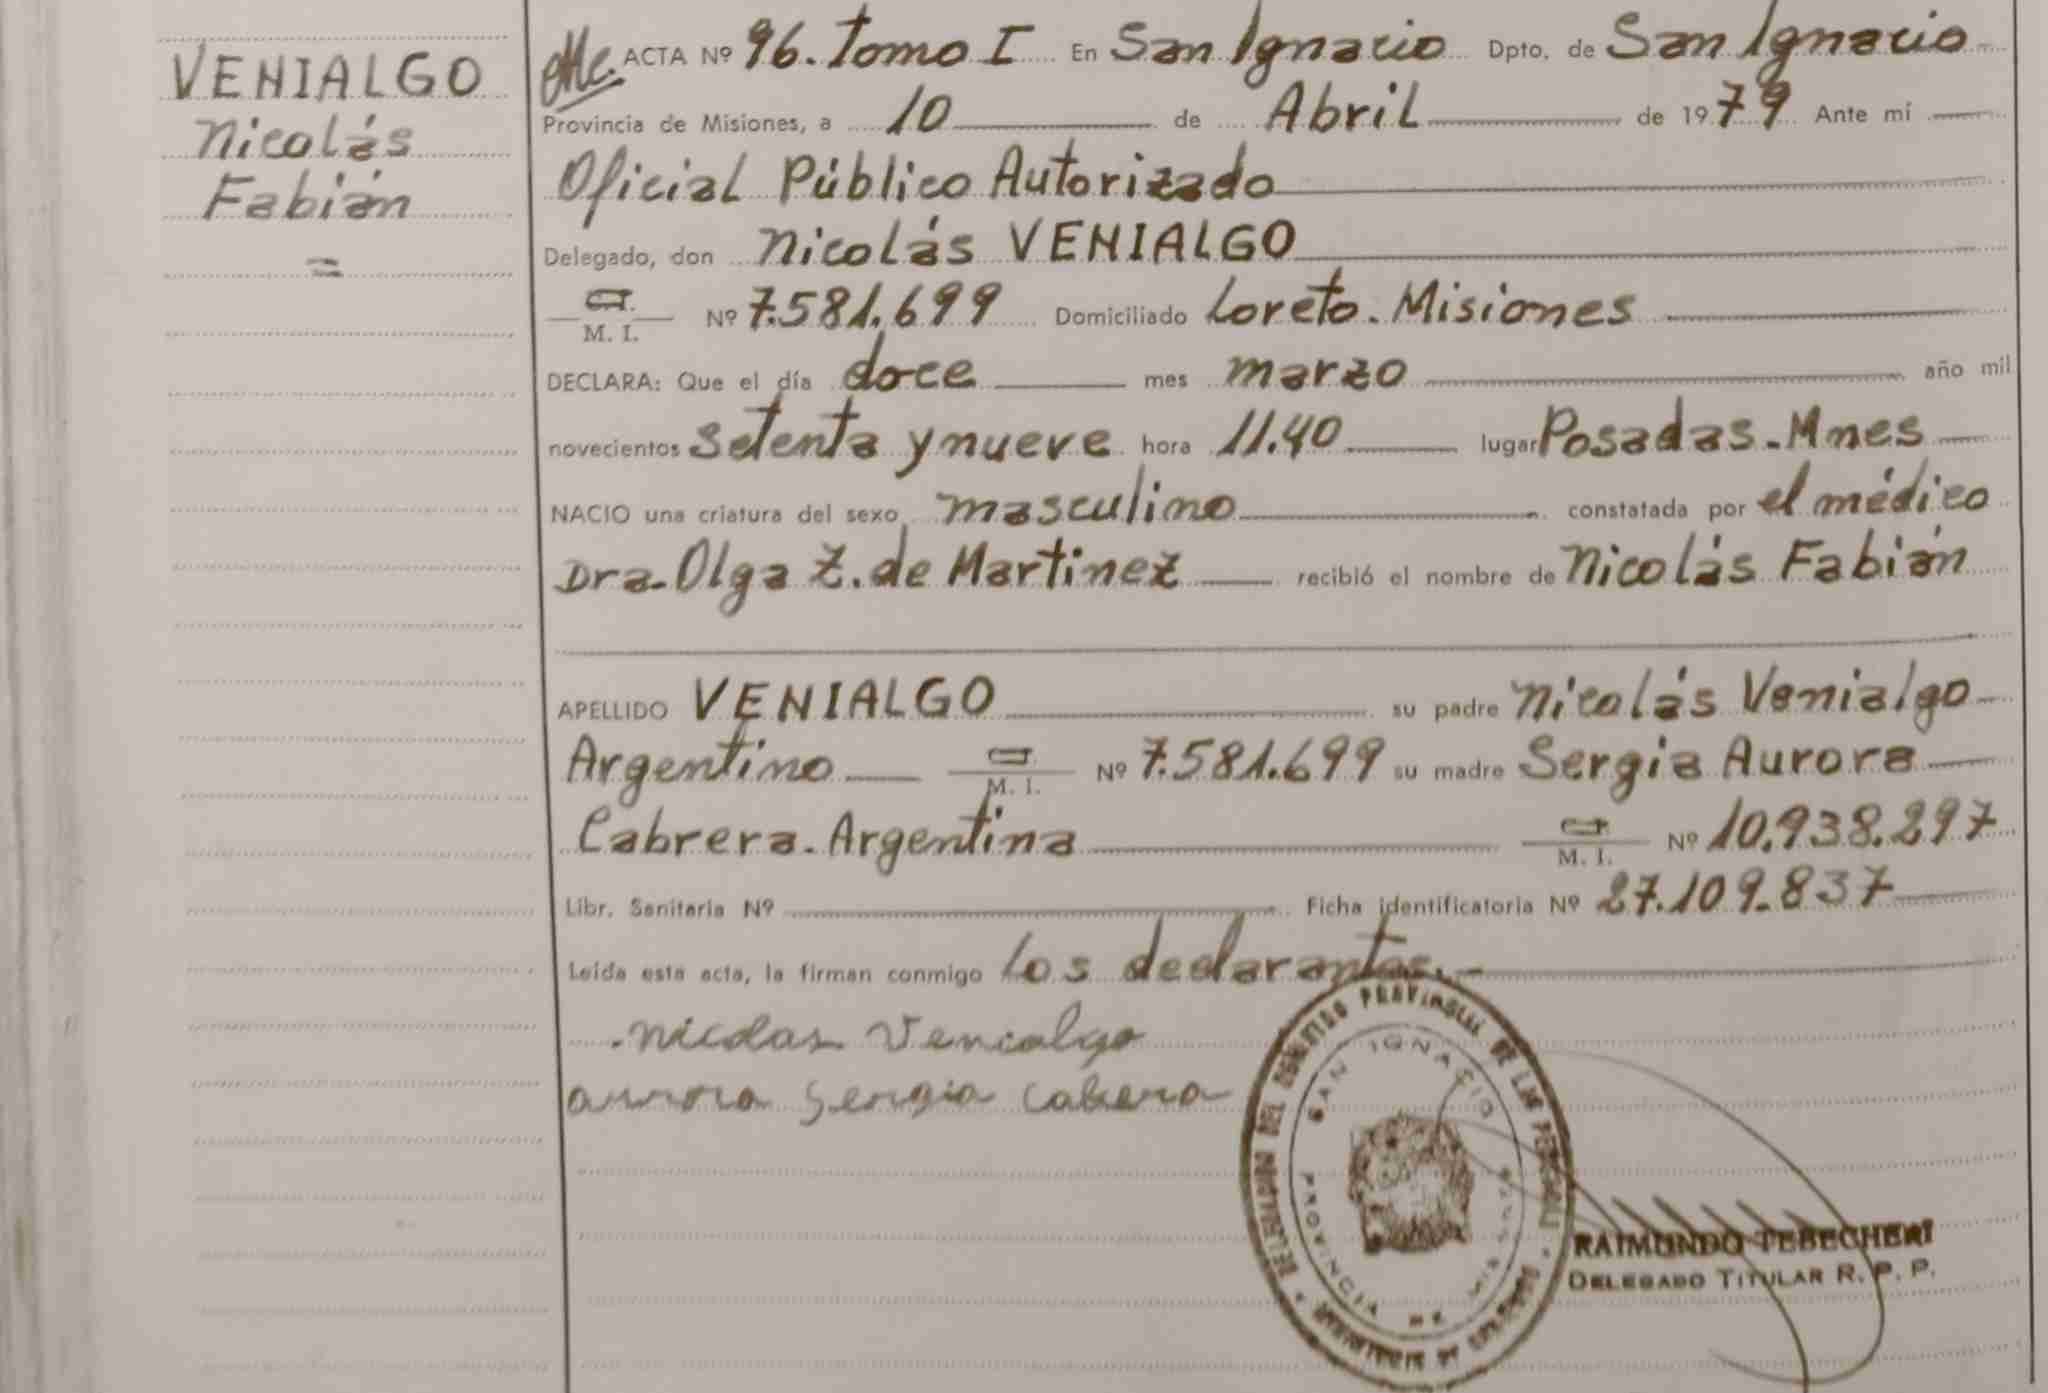 VENIALGO
Nicolás
Fabián
=
ACTA Nº 96. Tomo I En San Ignacio Dpto. de San Ignacio
Provincia de Misiones, a 10 de Abril de 1979 Ante mí
Oficial Público Autorizado
Delegado, don Nicolás VENIALGO
M. I. Nº 7.581.699 Domiciliado Loreto. Misiones
DECLARA: Que el día doce mes marzo año mil
novecientos setenta y nueve hora 11.40 lugar Posadas-Mnes
NACIO una criatura del sexo masculino constatada por el médico
Dra. Olga Z. de Martinez recibió el nombre de Nicolás Fabián
APELLIDO VENIALGO su padre Nicolás Venialgo
Argentino M. I. Nº 7.581.699 su madre Sergia Aurora
Cabrera. Argentina M. I. Nº 10.938.297
Libr. Sanitaria Nº Ficha identificatoria Nº 27.109.837
Leída esta acta, la firman conmigo los declarantes.-
Nicolas Venialgo
aurora Sergia Cabrera
DEL REGISTRO PROVINCIAL DE LAS PERSONAS
SAN IGNACIO
PROVINCIA DE MISIONES
RAIMUNDO TEBECHERI
DELEGADO TITULAR R. P. P.